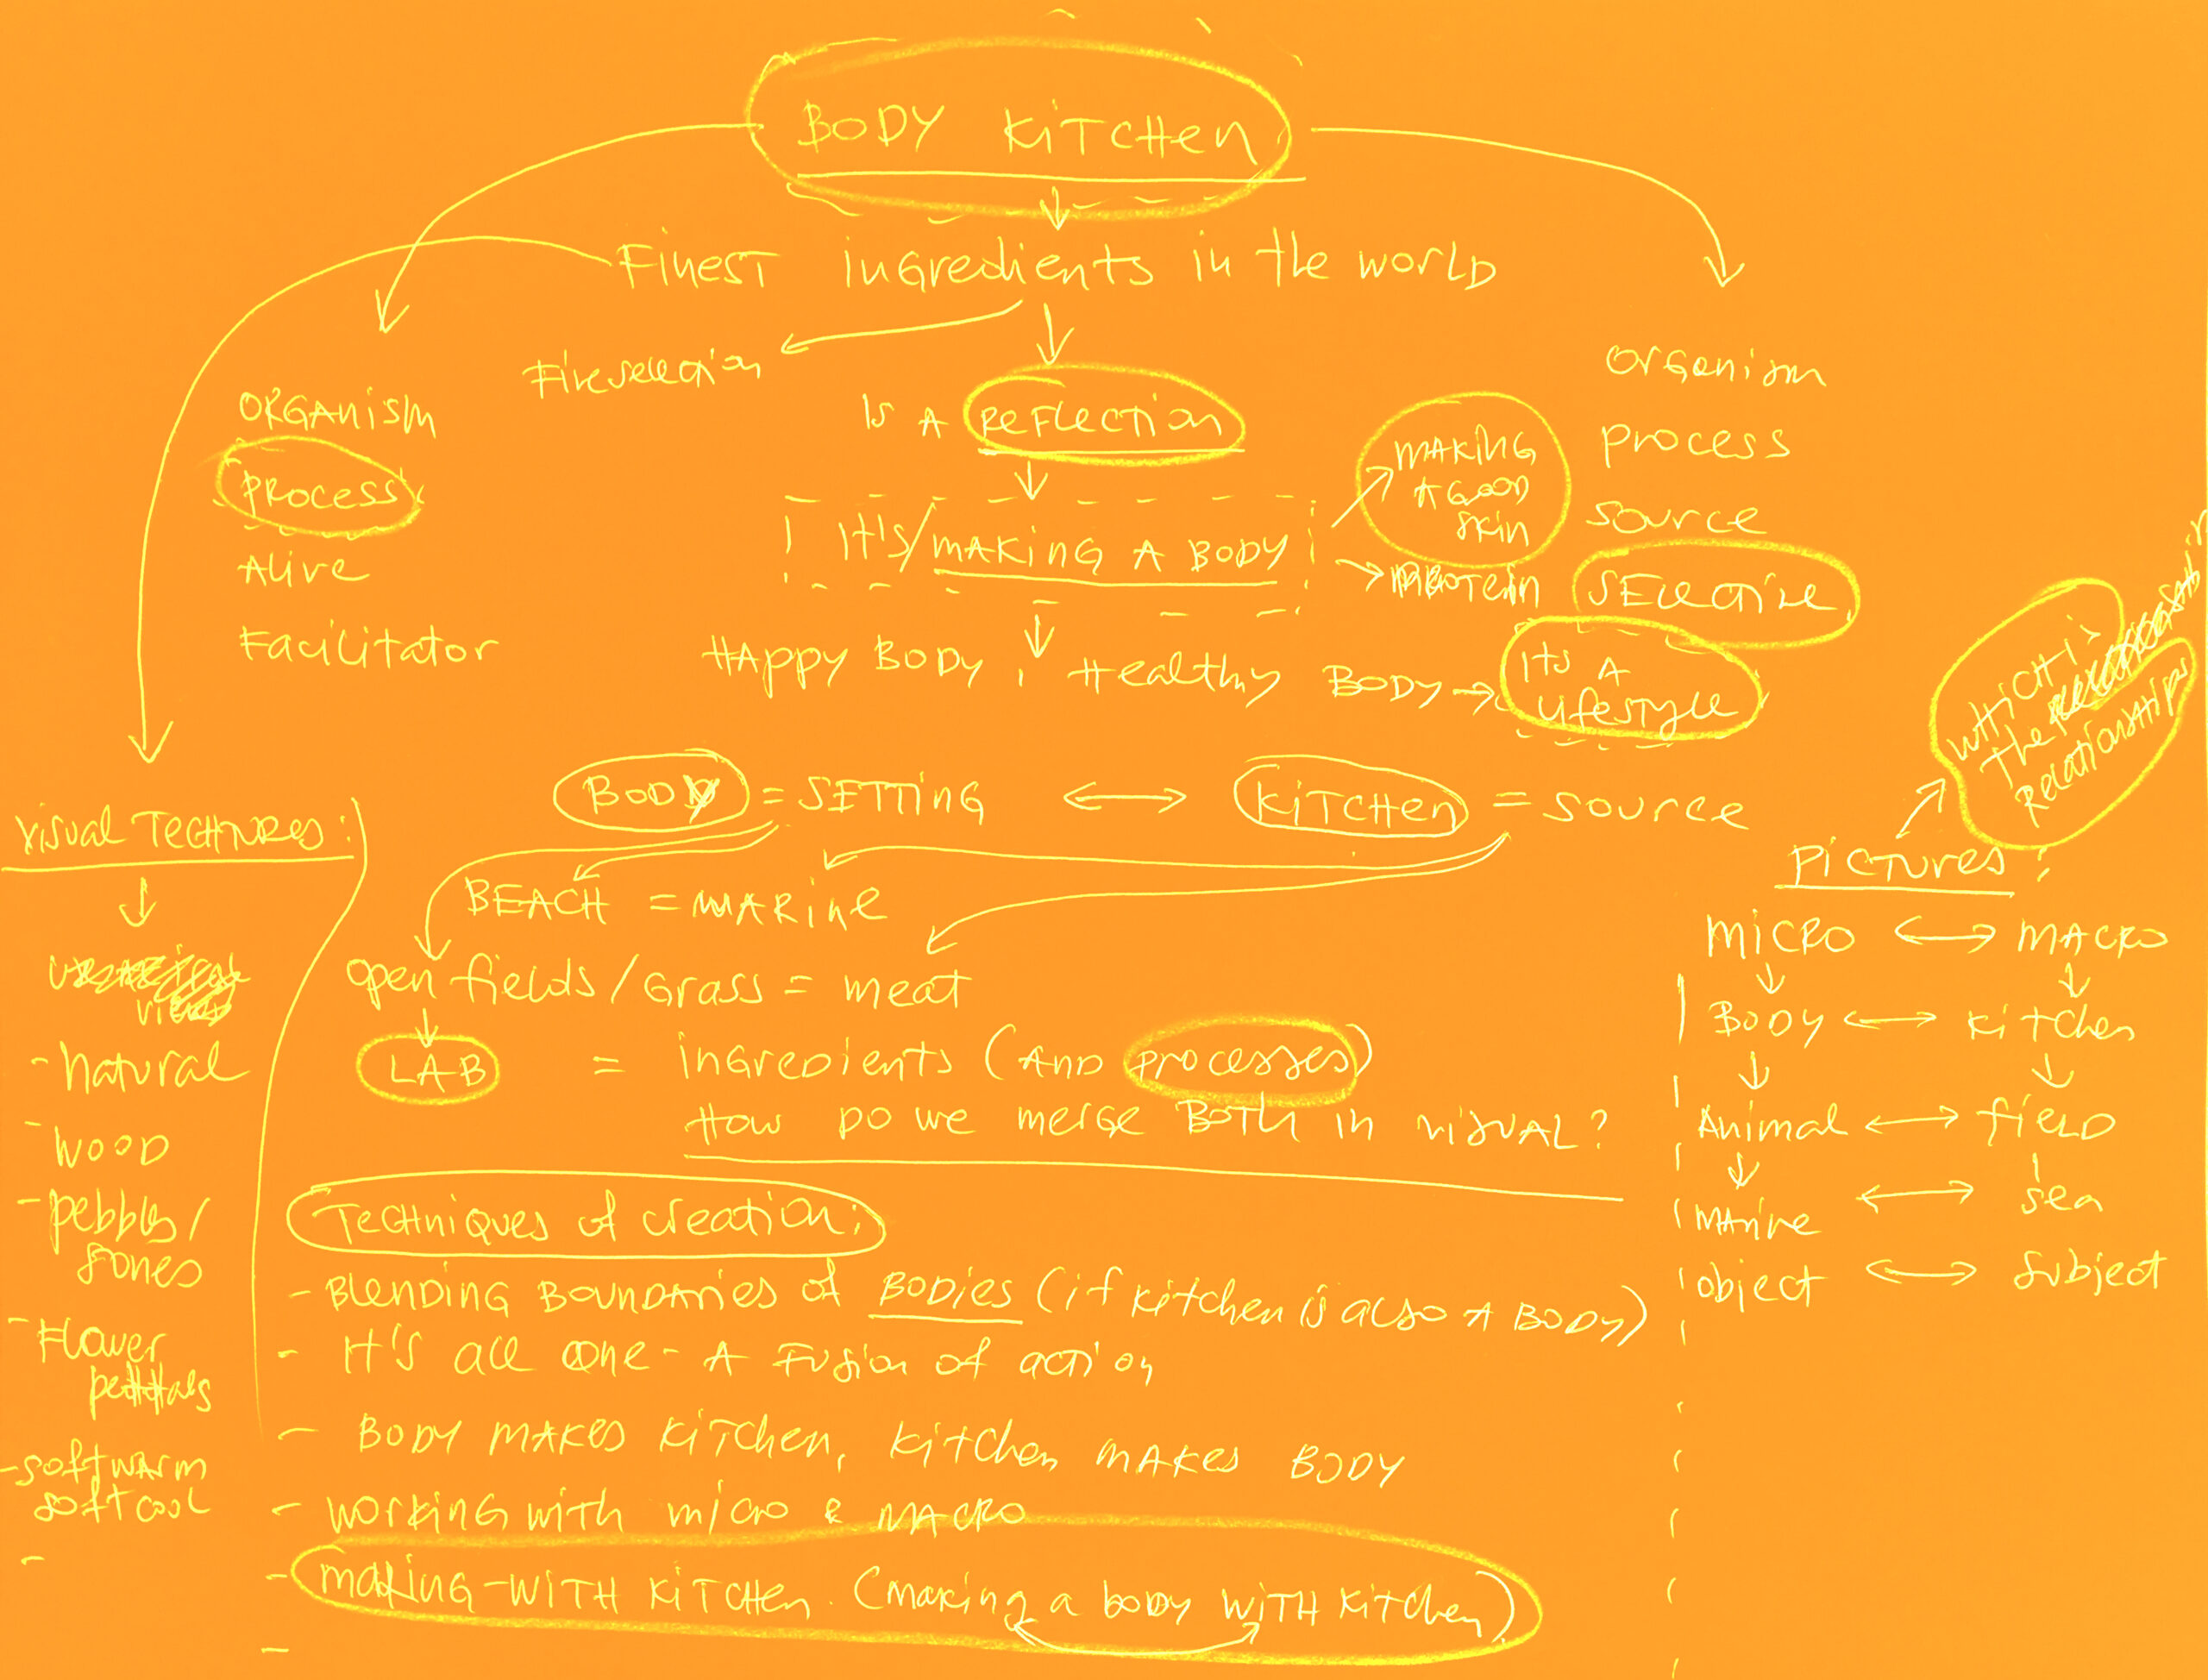 BODY KITCHEN
Finest ingredients in the world
Fine selection
IS A REFLECTION
IT'S/MAKING A BODY
MAKING
A GOOD
SKIN
PROTEIN
HAPPY BODY, Healthy BODY
ITS A
lifestyle
ORGANISM
PROCESS
Alive
Facilitator
Organism
process
source
SELECTIVE
BODY = SETTING
KITCHEN = source
BEACH = MARINE
open fields/Grass = meat
LAB = ingredients (AND processes)
How do we merge BOTH in visual?
Techniques of creation:
- Blending Boundaries of Bodies (if kitchen is also A BODY)
- It's all one - A Fusion of action
- BODY MAKES KITCHEN, KITCHEN MAKES BODY
- working with micro & MACRO
- making-WITH KITCHEN. (making a body WITH KITCHEN)
-
Visual TECHTURES:
- Natural
- WOOD
- pebbles/
Sones
- Flower
pettals
- soft warm
soft cool
-
WHICH
The
Relationships
Pictures:
MICRO MACRO
BODY kitchen
Animal field
Marine sea
object subject